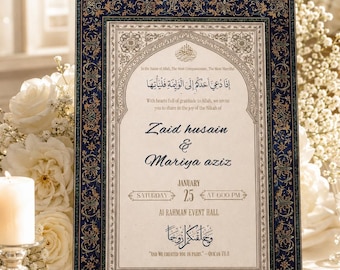 In the Name of Allah, The Most Compassionate, The Most Merciful
إِذَا دُعِيَ أَحَدُكُمْ إِلَى الْوَلِيمَةِ فَلْيَأْتِهَا
With hearts full of gratitude to Allah, we invite
you to share in the joy of the Nikkah of
Zaid husain
& Mariya aziz
JANUARY
SATURDAY
25
AT 6:00 PM
Al RAHMAN EVENT HALL
وَخَلَقْنَاكُمْ أَزْوَاجًا
"AND WE CREATED YOU IN PAIRS." —QURAN 78:8